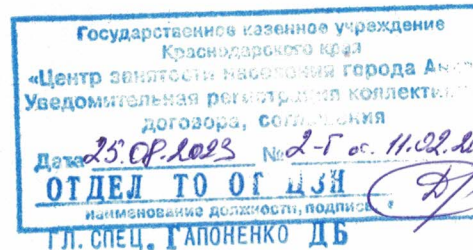 Государственное казенное учреждение
Краснодарского края
«Центр занятости населения города
Уведомительная регистрация
договора, соглашения
Дата 25.08.2023 № 2-Г от 11.02.
ОТДЕЛ ТО ОГ ЦЗН
наименование должности, подпись
ГЛ. СПЕЦ. ГАПОНЕНКО ДБ